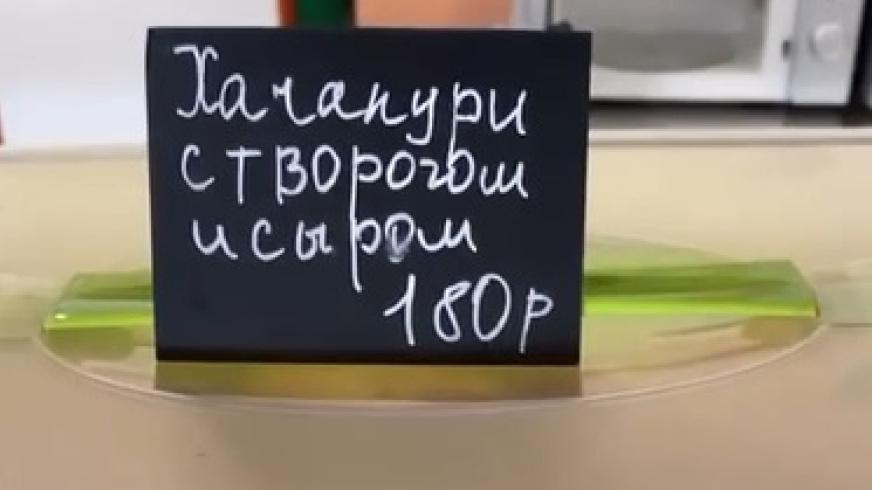 Хачапури
с творогом
и сыром
180р